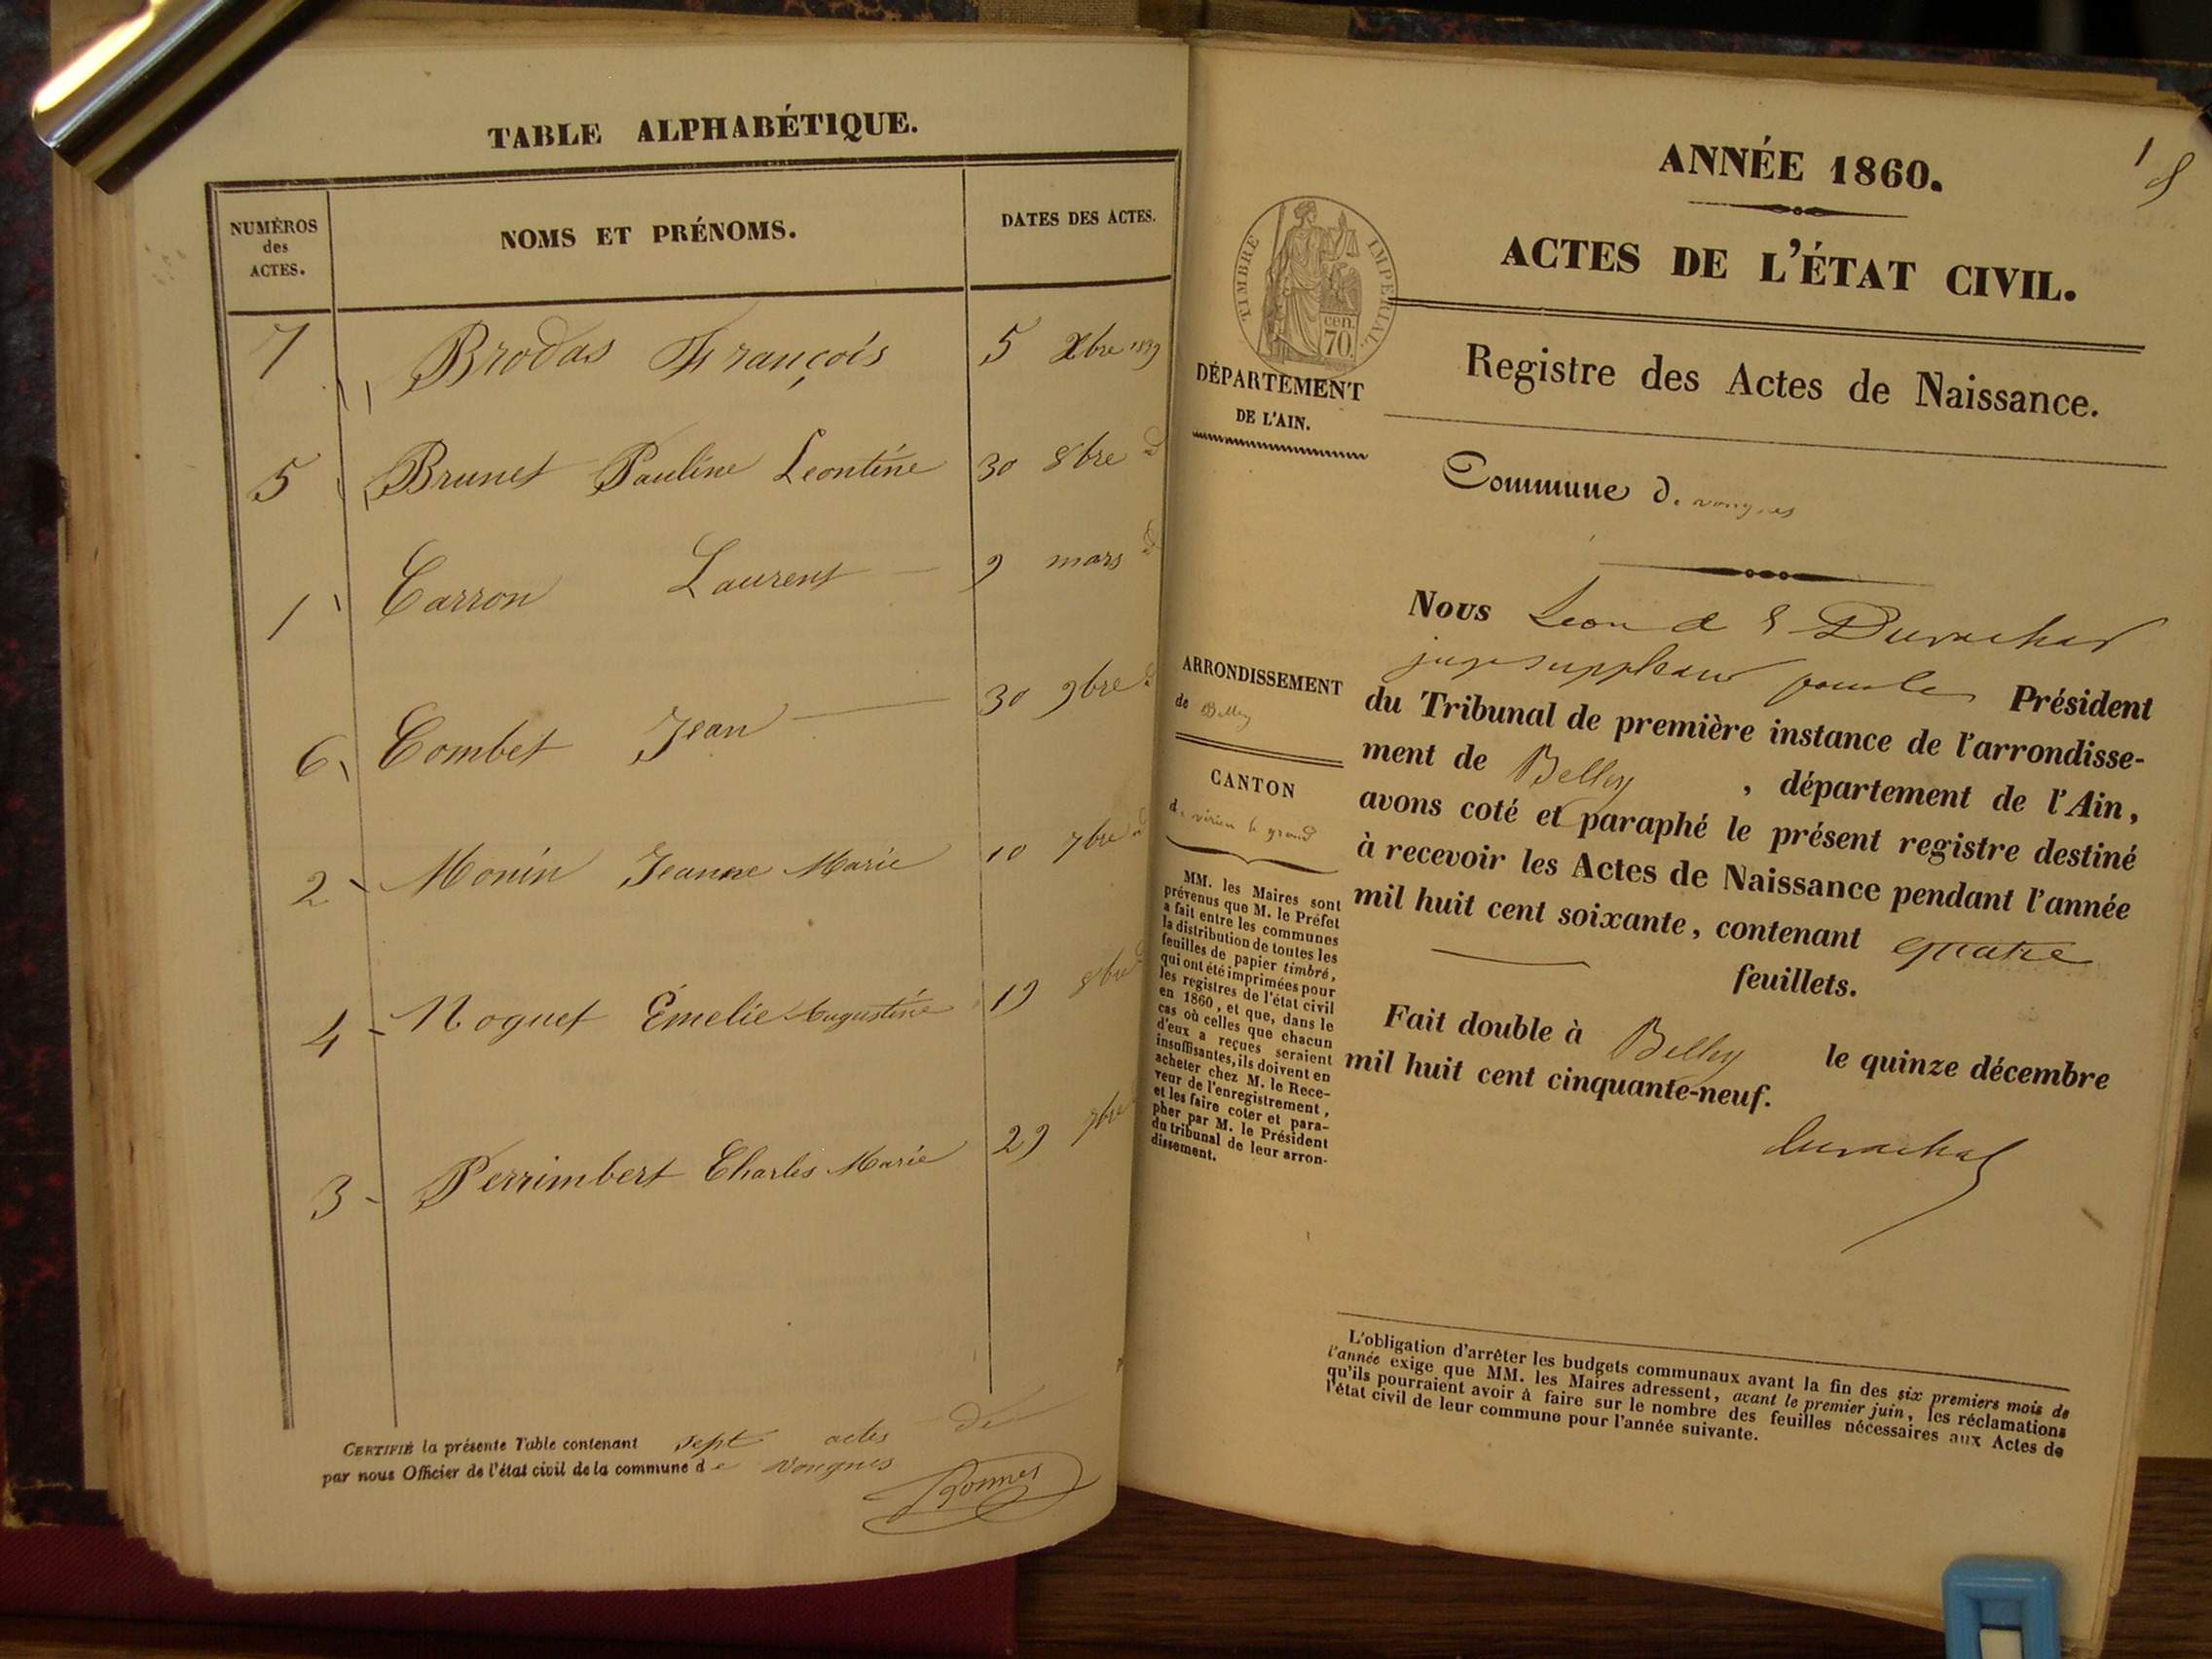 TABLE ALPHABÉTIQUE.
NUMÉROS des ACTES. NOMS ET PRÉNOMS. DATES DES ACTES.
7 Brodas François 5 Xbre 1859
5 Brunet Pauline Leontine 30 8bre d
1 Carron Laurent 9 mars d
6 Combet Jean 30 9bre d
2 Monin Jeanne Marie 10 7bre d
4 Noguet Émelie Augustine 19 8bre
3 Perrimbert Charles Marie 29 7bre
CERTIFIÉ la présente Table contenant sept actes de
par nous Officier de l'état civil de la commune de vongnes
1
ANNÉE 1860.
ACTES DE L'ÉTAT CIVIL.
TIMBRE IMPERIAL
cen.
70.
DÉPARTEMENT
DE L'AIN.
Registre des Actes de Naissance.
Commune de vongnes
ARRONDISSEMENT
de Belley
CANTON
de virieu le grand
MM. les Maires sont
prévenus que M. le Préfet
a fait entre les communes
la distribution de toutes les
feuilles de papier timbré,
qui ont été imprimées pour
les registres de l'état civil
en 1860, et que, dans le
cas où celles que chacun
d'eux a reçues seraient
insuffisantes, ils doivent en
acheter chez M. le Rece-
veur de l'enregistrement,
et les faire coter et para-
pher par M. le Président
du tribunal de leur arron-
dissement.
Nous Leon Durachat
juge suppleant pour le Président
du Tribunal de première instance de l'arrondisse-
ment de Belley , département de l'Ain,
avons coté et paraphé le présent registre destiné
à recevoir les Actes de Naissance pendant l'année
mil huit cent soixante, contenant quatre
feuillets.
Fait double à Belley le quinze décembre
mil huit cent cinquante-neuf.
Durachat
L'obligation d'arrêter les budgets communaux avant la fin des six premiers mois de
l'année exige que MM. les Maires adressent, avant le premier juin, les réclamations
qu'ils pourraient avoir à faire sur le nombre des feuilles nécessaires aux Actes de
l'état civil de leur commune pour l'année suivante.